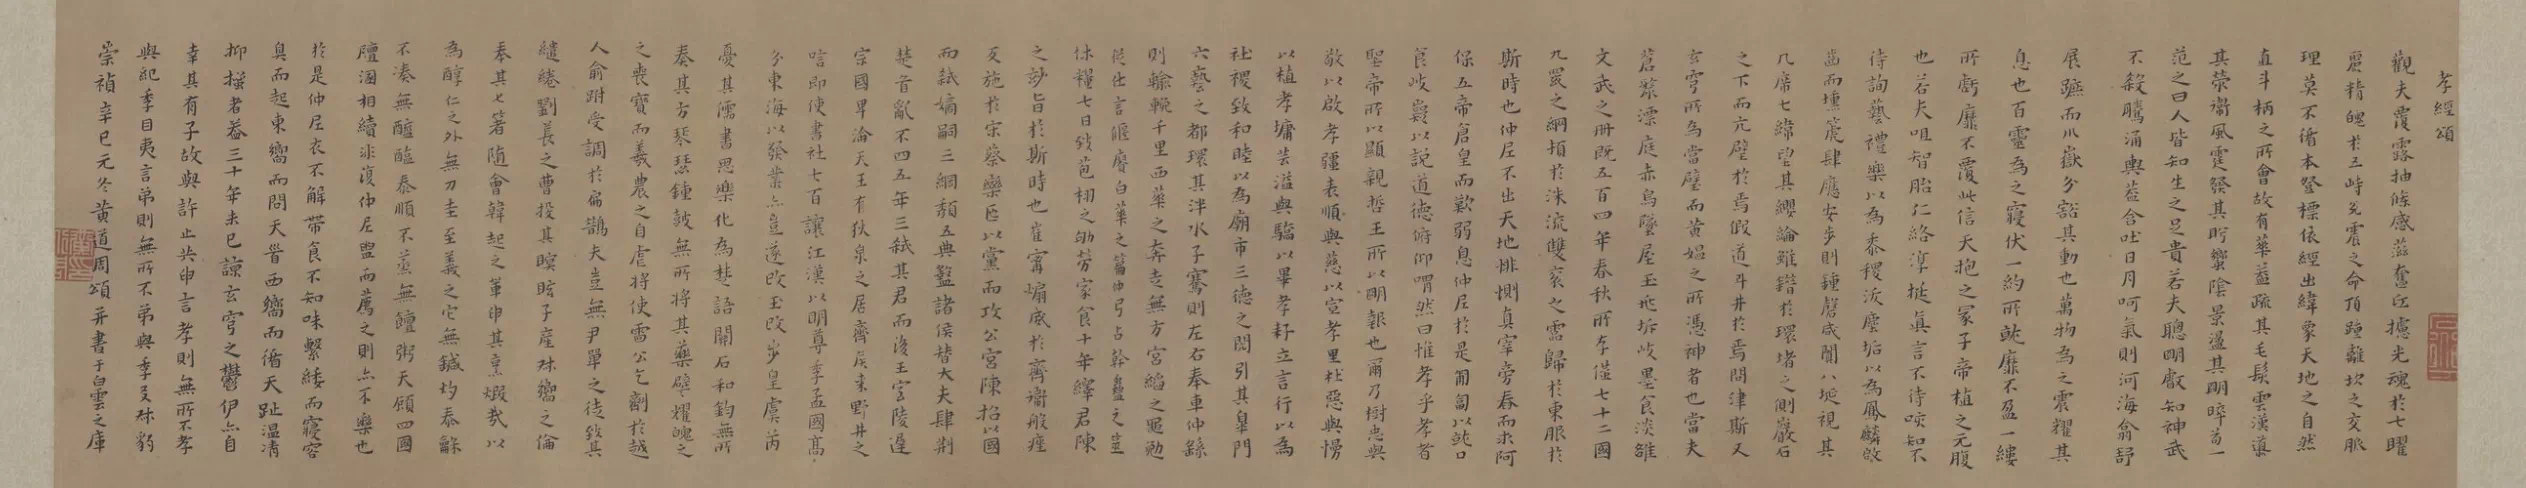 孝經頌
觀夫覆露抽條感滋奮匹攄光魂於七曜
麗精魄於五峙咒震之命頂踵離坎之交脈
理莫不循本發標依經出緯象天地之自然
直斗柄之所會故有華蓋疏其毛髮雲漢導
其榮衛風霆發其肝蠁陰景盪其明晬首一
范之曰人皆知生之足貴若夫聰明叡知神武
不殺騰涌輿蓋含吐日月呵氣則河海翕舒
展蹠而川嶽分豁其動也萬物為之震耀其
息也百靈為之寢伏一約所就靡不盈一縷
所虧靡不覆此信天抱之冢子帝植之元腹
也若夫咀智胎仁絡淳挻真言不待咳知不
待詢藝禮樂以為黍稷浣塵垢以為鳳麟啟
齒而壎篪肆應安步則鍾磬咸聞八埏視其
几席七緯望其纓綸雖錯於環堵之側巖石
之下而亢璧於焉假道斗井於焉問津斯又
玄穹所為當璧而黃媼之所憑神者也當夫
蒼蔡漂庭赤烏墜屋玉版坼岐墨食淡雒
文武之冊既五百四年春秋所存僅七十二國
九罭之綱頓於洙流雙袞之靄歸於東服於
斯時也仲尼不出天地悱惻真宰旁春而求阿
保五帝倉皇而歎弱息仲尼於是匍匐以就口
食岐嶷以說道德俯仰喟然曰惟孝乎孝者
聖帝所以顯親哲王所以明報也爾乃樹忠與
敬以啟孝疆表順與慈以宣孝里杜惡與慢
以植孝墉芸溢與驕以畢孝耔立言行以為
社稷致和睦以為廟市三德之閎引其皋門
六藝之都環其泮水子騫則左右奉車仲繇
則輸輓千里西華之奔走無方宮縚之黽勉
從仕言偃賡白華之篇曲弓占幹蠱之筮
休糧七日歿苞栩之劬勞家食十年繹君陳
之妙旨於斯時也崔甯煽威於齊衛般痤
反施於宋蔡欒臣以黨而攻公宮陳招以國
而弒嫡嗣三綱頹五典盭諸侯替大夫肆荆
楚首亂不四五年三弒其君而後王宮陵遲
宗國卑淪天王有狄泉之居齊侯來野井之
唁即使書社七百讓江漢以明尊季孟國高
分東海以發業亦豈遂改玉改步皇虞芮
憂其濡書思樂化為楚語關石和鈞無所
奏其方琴瑟鍾鼓無所將其藥壁燿魄之
之喪寶而羲農之自虐將使雷公乞劑於越
人俞跗受調於扁鵲夫豈無尹單之徒致其
繾綣劉萇之曹投其瞑眩子產殊嚮之倫
奉其七箸隨會韓起之輩申其烹煅哉以
為醇仁之外無刀圭至義之它無鍼灼泰龢
不湊無醯醢泰順不蒸無饘粥天顧四國
膻湎相續非復仲尼盥而薦之則亦不樂也
於是仲尼衣不解帶食不知味繫緌而寢容
臭而起東嚮而問天晉西嚮而循天趾溫清
抑搔者蓋三十年未已諒玄穹之鬱伊亦自
幸其有子故與許止共申言孝則無所不孝
與紀季目夷言弟則無所不弟與季友殊豹
崇禎辛巳元冬黃道周頌并書于白雲之庫